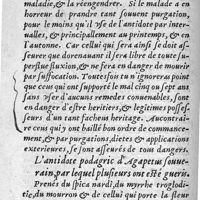 maladie,& la réengendrer. Si le malade a en
horreur de prandre tant souuent purgation,
pour le moins qu'il vse de l'antidote par inter-
ualles, & principallement au printemps, & en
l'automne. Car cellui qui sera ainsi se doit as-
seurer que dorenauant il sera libre de toute su-
perfluë fluxion,& ne sera en danger de mourir
par suffocation. Toutesfois tu n'ignoreras point
que ceux qui ont supporté le mal cinq ou sept ans
sans vser d'aucuns remedes conuenables, sont
en danger d'estre heritiers,& legitimes posses-
seurs d'un tant facheux heritage. Au contrai-
re ceux qui y ont baillé bon ordre de commance-
ment,& par purgations, dietes & applications
exterieures, se sont asseurés de tous dangers.
L'antidote podagric d'Agapetus souue-
rain, par lequel plusieurs ont esté gueris.
Prenés du spica nardi, du myrrhe troglodi-
tic, du mourron & de cellui qui porte la fleur